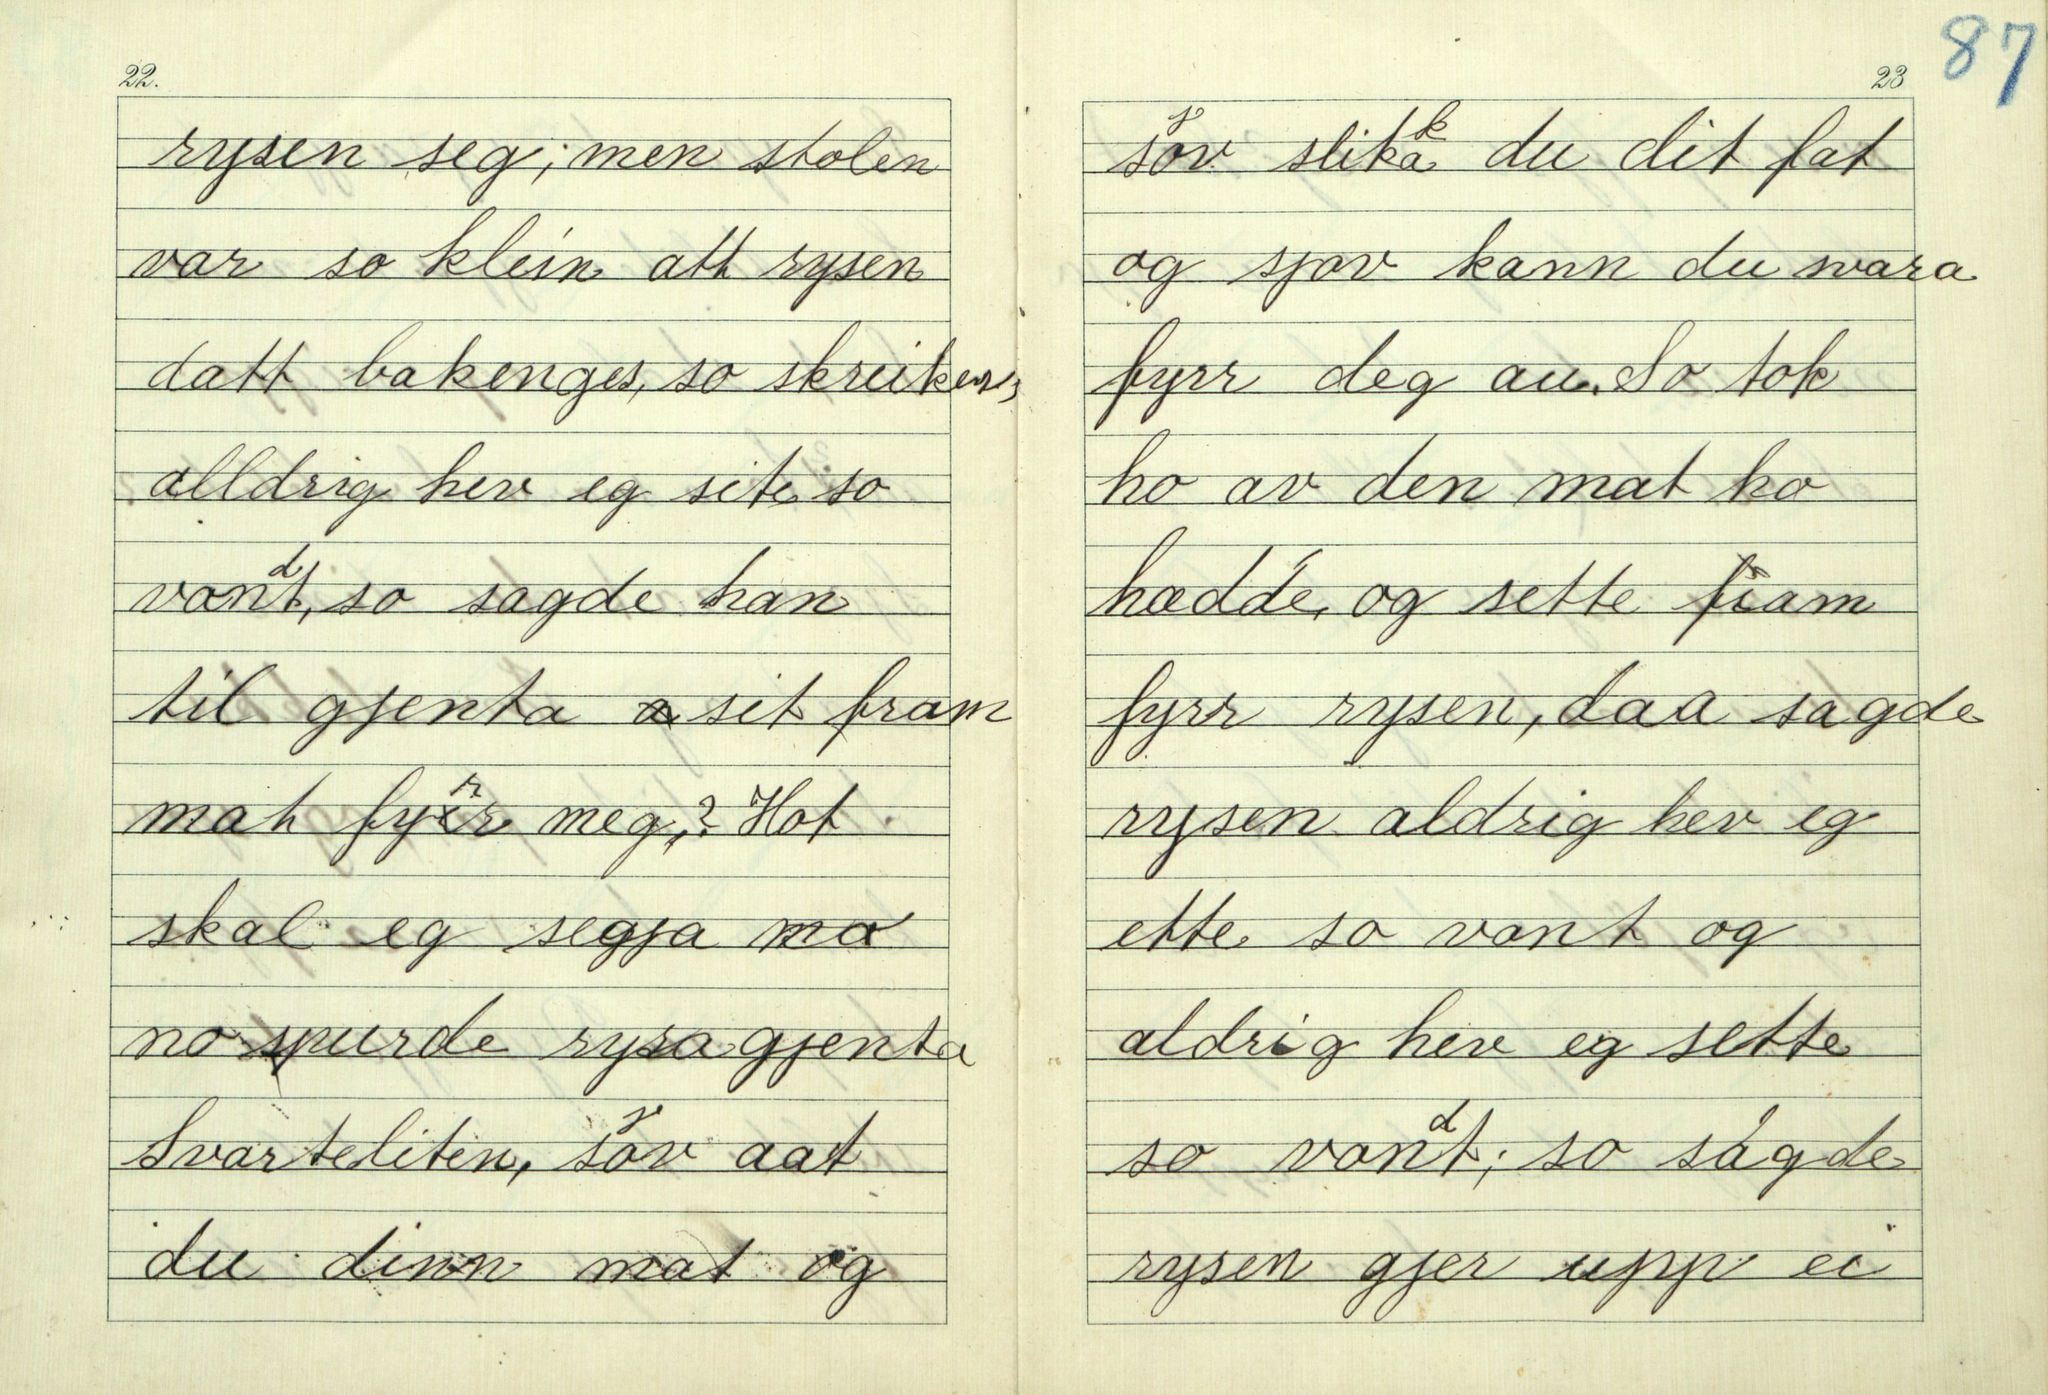 22.
rysen seg; men stolen
var so klein att rysen
datt bakenges, so skreik en,
alldrig hev eg site so
vondt, so sagde han
til gjenta sit fram
mat fyrr meg,? Hot
skal eg segja mo
no spurde rysagjenta
Svarteliten, sjov aat
du dinn mat og
87
23
sjov slikka du dit fat
og sjov kann du svara
fyrr deg au. So tok
ho av den mat ho
hadde, og sette fram
fyrr rysen, daa sagde
rysen aldrig hev eg
ette so vont og
aldrig hev eg sette
so vondt; so sagde
rysen gjer upp ei